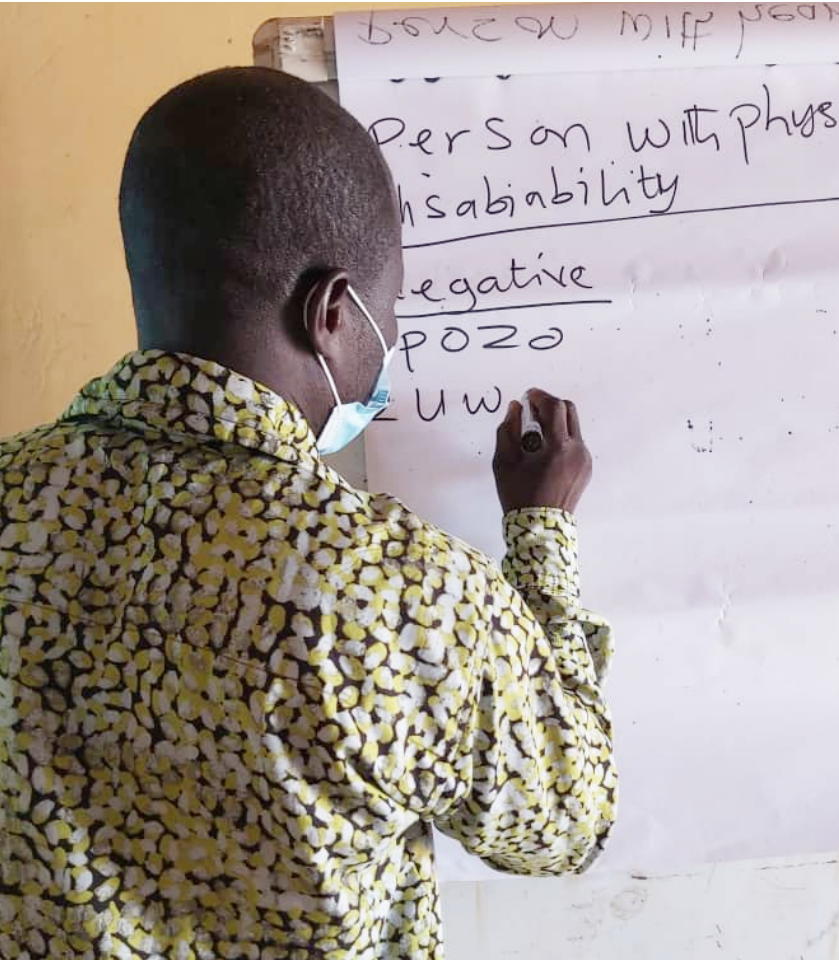 Person with phys
disabiability
negative
pozo
zuw